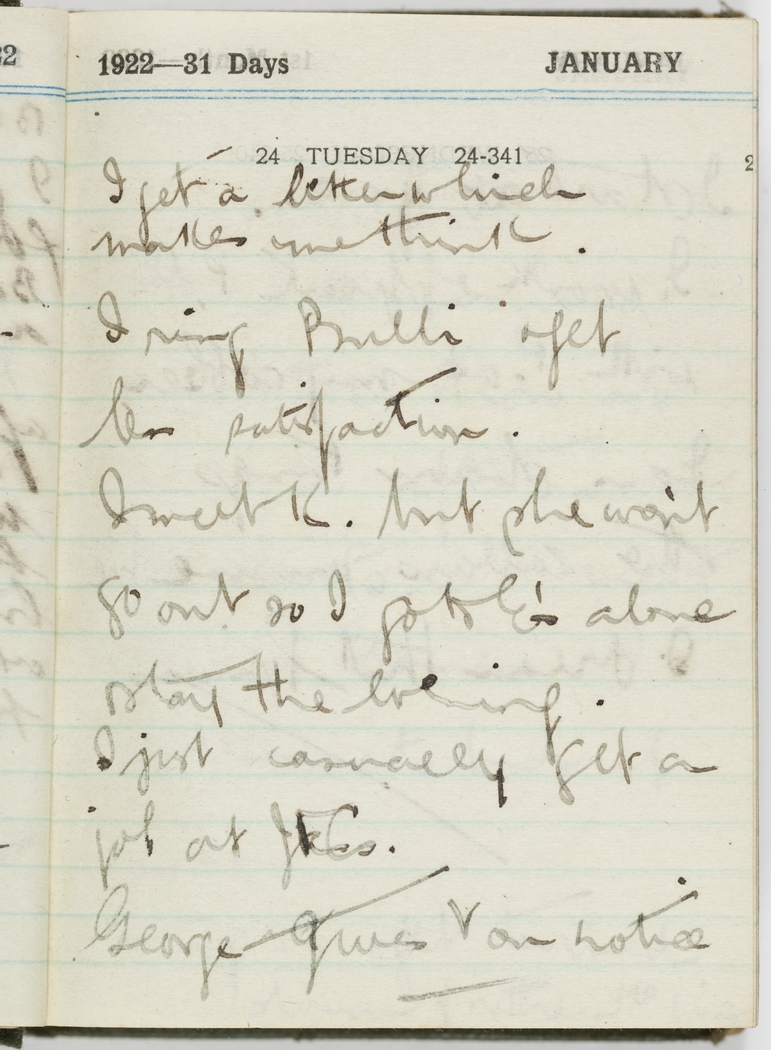 1922—31 Days JANUARY
24 TUESDAY 24-341
I get a letter which
makes me think.
I ring Bulli & get
les satisfaction.
I meet K. but she won't
go out so I go to E's alone
& stay the evening.
I just casually get a
job at
George gives V an notice